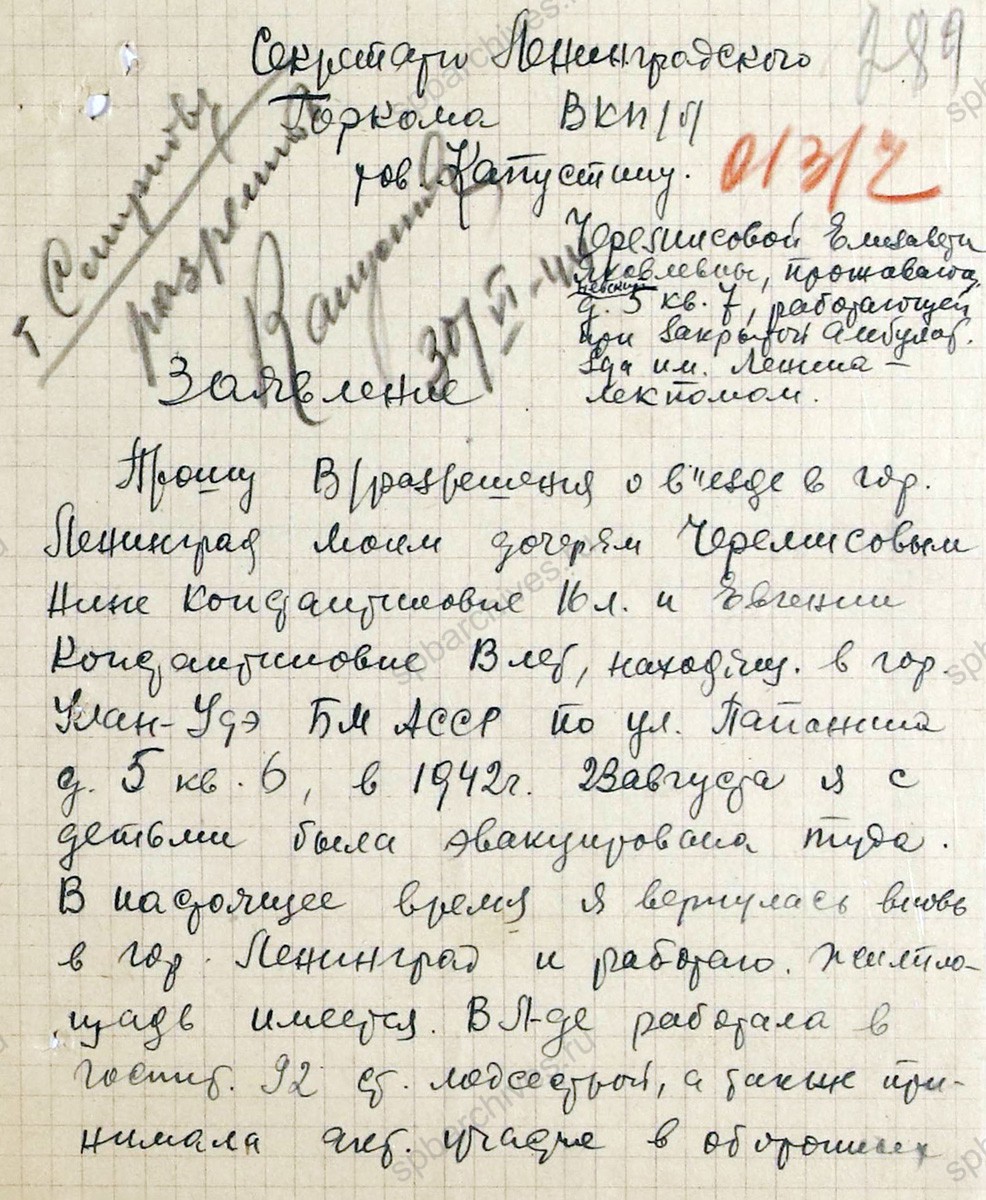 289
Секретарю Ленинградского
Горкома ВКП/б/
тов. Капустину.
0/3/2
т Смирнову
разрешить
Капустин
30/VI-44
Черемисовой Елизаветы
Яковлевны, прожавающ.
Невский
д. 5 кв. 7, работающей
при закрытой Амбулат.
з-да им. Ленина –
лекпомом.
Заявление
Прошу В/разрешения о в"езде в гор.
Ленинград моим дочерям Черемисовым
Нине Константиновне 16 л. и Евгении
Константиновне 13 лет, находящ. в гор.
Улан-Удэ БМ АССР по ул. Папанина
д. 5 кв. 6, в 1942г. 23 августа я с
детьми была эвакуирована туда.
В настоящее время я вернулась вновь
в гор. Ленинград и работаю. Жилпло-
щадь имеется. В Л-де работала в
госпит. 92 ст. медсестрой, а также при-
нимала акт. участие в оборонных
spbarchives.ru